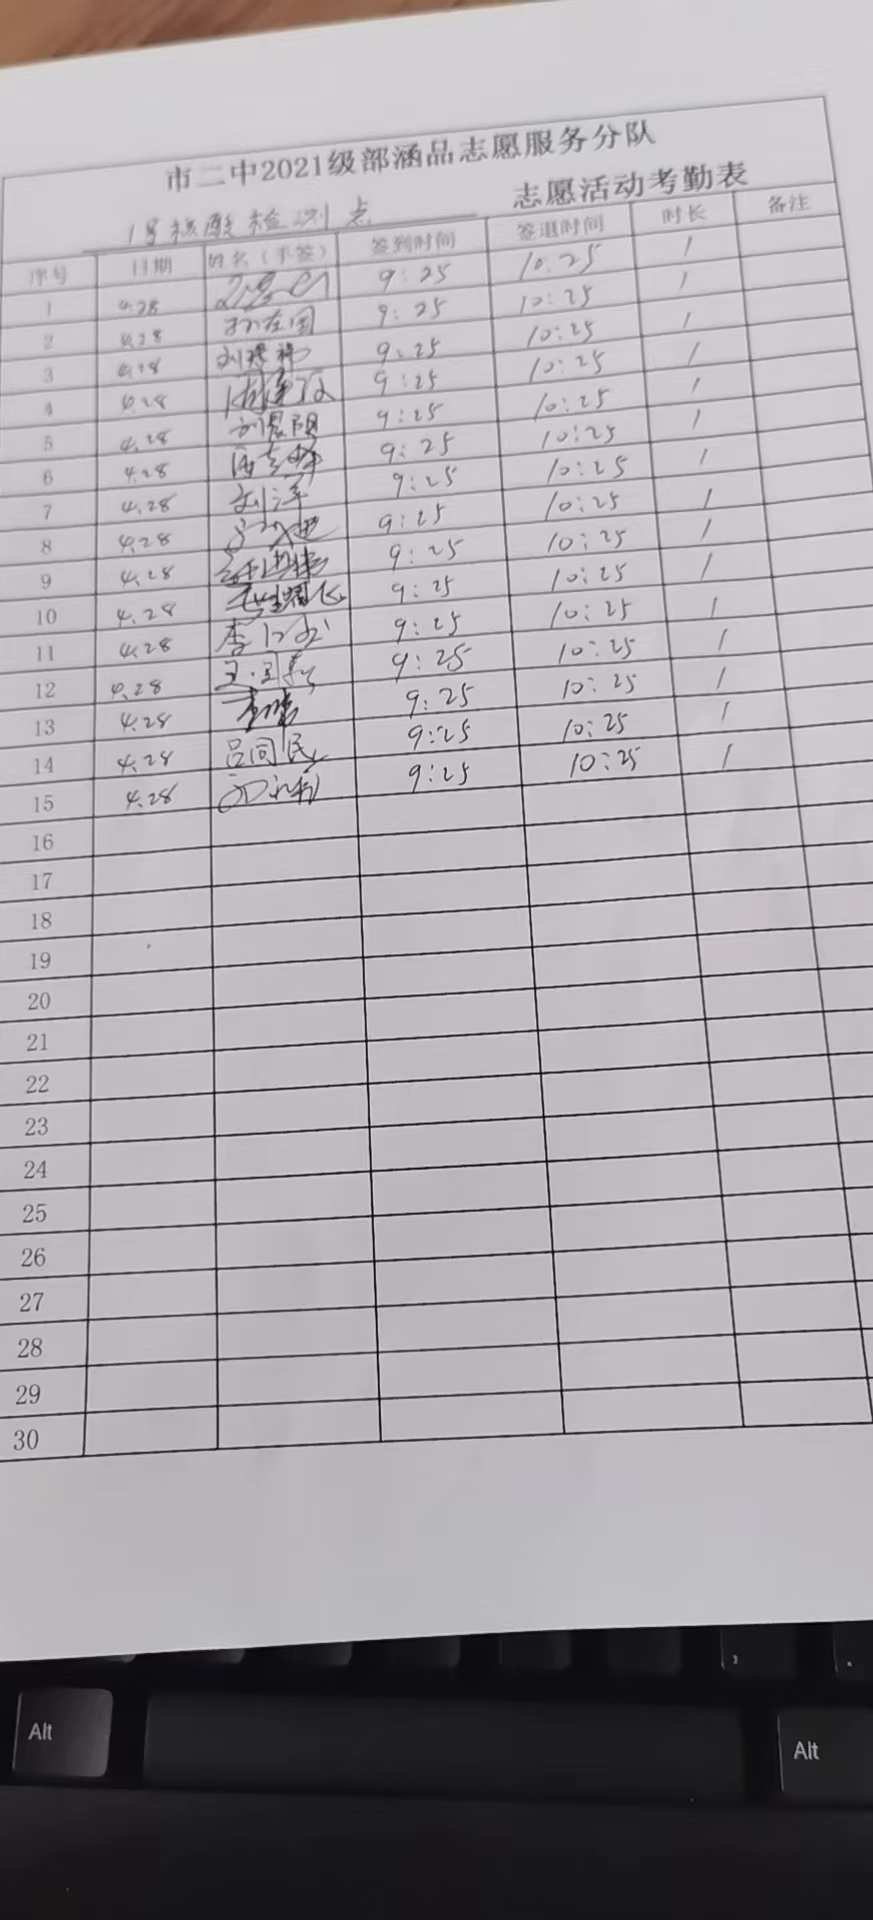 市二中2021级部涵品志愿服务分队
1号核酸检测点 志愿活动考勤表
序号 日期 姓名（手签） 签到时间 签退时间 时长 备注
1 4.28 9:25 10:25 1
2 4.28 孙在国 9:25 10:25 1
3 4.28 9:25 10:25 1
4 4.28 9:25 10:25 1
5 4.28 刘晨阳 9:25 10:25 1
6 4.28 9:25 10:25 1
7 4.28 刘洋 9:25 10:25 1
8 4.28 9:25 10:25 1
9 4.28 9:25 10:25 1
10 4.28 9:25 10:25 1
11 4.28 9:25 10:25 1
12 4.28 9:25 10:25 1
13 4.28 9:25 10:25 1
14 4.28 吕同民 9:25 10:25 1
15 4.28 9:25 10:25 1
16
17
18
19
20
21
22
23
24
25
26
27
28
29
30
Alt Alt